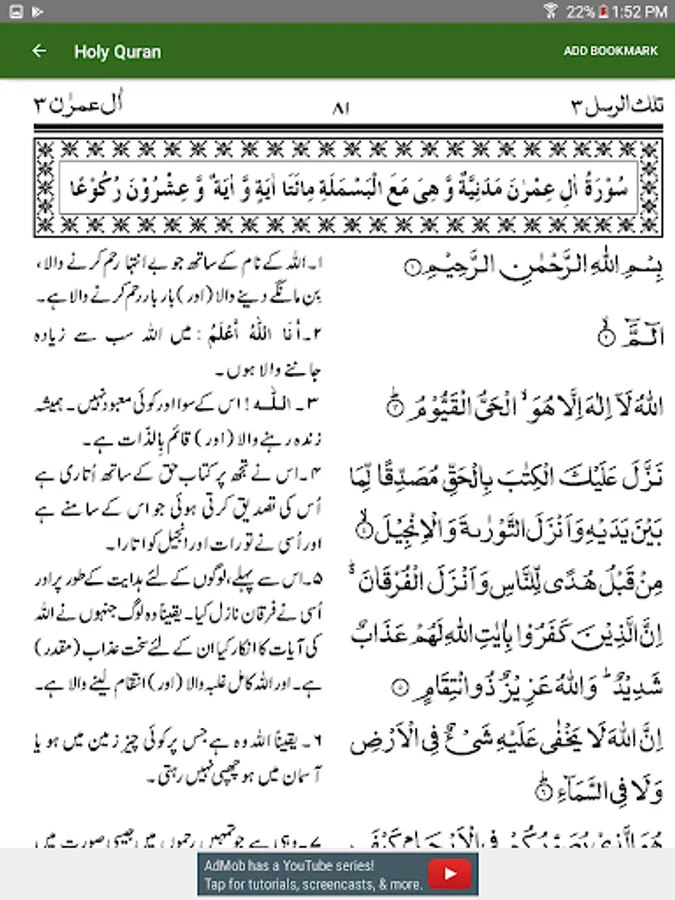 22% 1:52 PM
Holy Quran
ADD BOOKMARK
تلك الرسل ٣
٨١
اٰل عمرٰن ٣
سُوْرَةُ اٰلِ عِمْرٰنَ مَدَنِيَّةٌ وَّ هِىَ مَعَ الْبَسْمَلَةِ مِائَتَا اٰيَةٍ وَّ اٰيَةٌ وَّ عِشْرُوْنَ رُكُوْعًا
بِسْمِ اللّٰهِ الرَّحْمٰنِ الرَّحِيْمِ ①
الٓمّٓ ②
اَللّٰهُ لَاۤ اِلٰهَ اِلَّا هُوَ ۙ الْحَىُّ الْقَيُّوْمُ ؕ③
نَزَّلَ عَلَيْكَ الْكِتٰبَ بِالْحَقِّ مُصَدِّقًا لِّمَا
بَيْنَ يَدَيْهِ وَاَنْزَلَ التَّوْرٰىةَ وَالْاِنْجِيْلَ ۙ④
مِنْ قَبْلُ هُدًى لِّلنَّاسِ وَاَنْزَلَ الْفُرْقَانَ ۬ؕ
اِنَّ الَّذِيْنَ كَفَرُوْا بِاٰيٰتِ اللّٰهِ لَهُمْ عَذَابٌ
شَدِيْدٌ ؕ وَاللّٰهُ عَزِيْزٌ ذُو انْتِقَامٍ ⑤
اِنَّ اللّٰهَ لَا يَخْفٰى عَلَيْهِ شَىْءٌ فِى الْاَرْضِ
وَلَا فِى السَّمَآءِ ؕ⑥
هُوَ الَّذِىْ يُصَوِّرُكُمْ فِى الْاَرْحَامِ كَيْفَ
۱۔ اللہ کے نام کے ساتھ جو بے انتہا رحم کرنے والا،
بن مانگے دینے والا (اور) بار بار رحم کرنے والا ہے۔
۲۔ أَنَا اللّٰهُ أَعْلَمُ : میں اللہ سب سے زیادہ
جاننے والا ہوں۔
۳۔ اللّٰہ! اس کے سوا اور کوئی معبود نہیں۔ ہمیشہ
زندہ رہنے والا (اور) قائم بالذّات ہے۔
۴۔ اس نے تجھ پر کتاب حق کے ساتھ اُتاری ہے
اُس کی تصدیق کرتی ہوئی جو اس کے سامنے ہے
اور اُسی نے تورات اور انجیل کو اتارا۔
۵۔ اس سے پہلے، لوگوں کے لئے ہدایت کے طور پر اور
اُسی نے فرقان نازل کیا۔ یقیناً وہ لوگ جنہوں نے اللہ
کی آیات کا انکار کیا ان کے لئے سخت عذاب (مقدر)
ہے۔ اور اللہ کامل غلبہ والا (اور) انتقام لینے والا ہے۔
۶۔ یقیناً اللہ وہ ہے جس پر کوئی چیز زمین میں ہو یا
آسمان میں ہو چھپی نہیں رہتی۔
۷۔ وہی ہے جو تمہیں رحموں میں جیسی صورت میں
AdMob has a YouTube series!
Tap for tutorials, screencasts, & more.